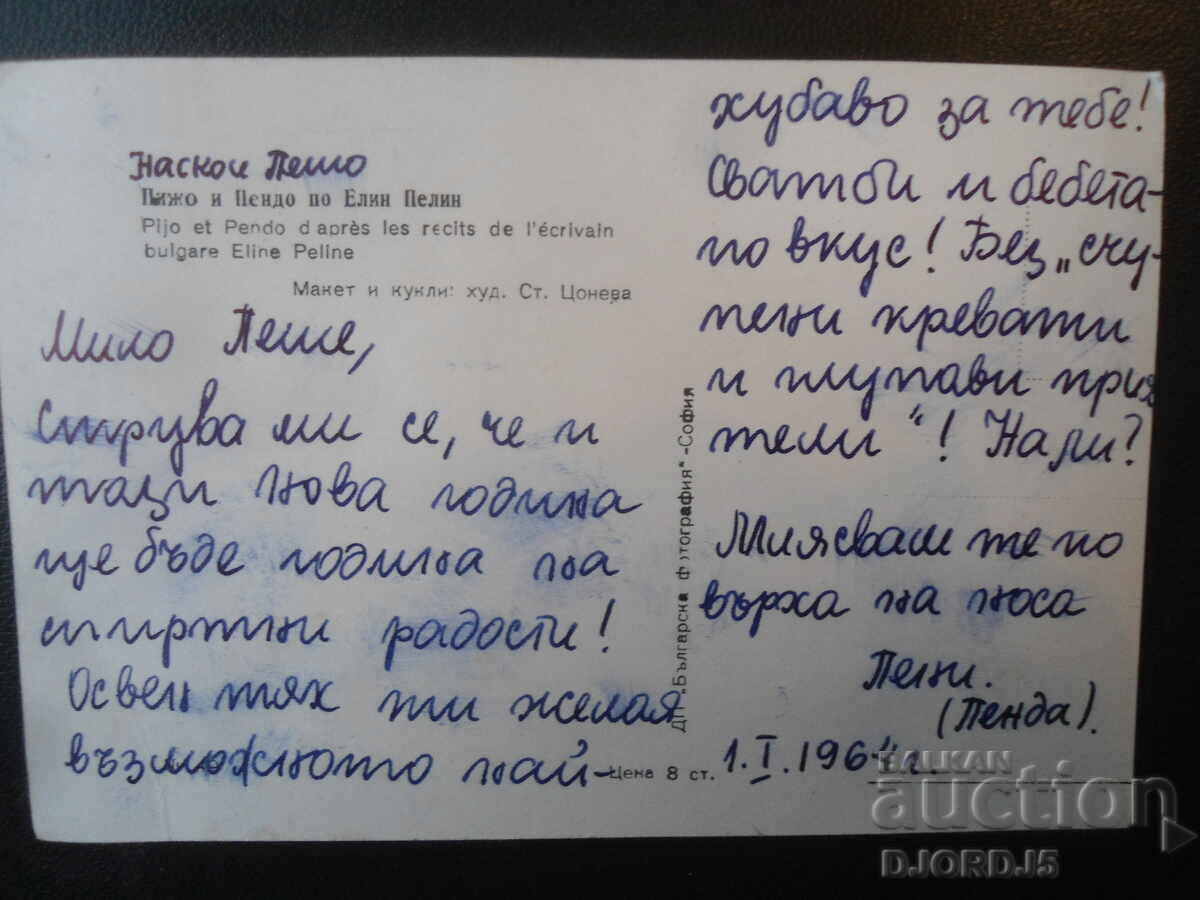 Наскои Пешо
Пижо и Пендо по Елин Пелин
Pijo et Pendo d'après les recits de l'écrivain
bulgare Eline Peline
Макет и кукли: худ. Ст. Цонева
Мило Пеше,
струва ми се, че и
тази нова година
ще бъде година на
спиртни радости!
Освен тях ти желая
възможното най-
хубаво за тебе!
Сватби и бебета-
по вкус! Без „счу-
пени кревати
и глупави прия
тели"! Нали?
Млясваш те по
върха на носа
Пени.
(Пенда).
1.I.1964 г.
Цена 8 ст.
ДП „Българска фотография"-София
BALKAN
auction
DJORDJ5